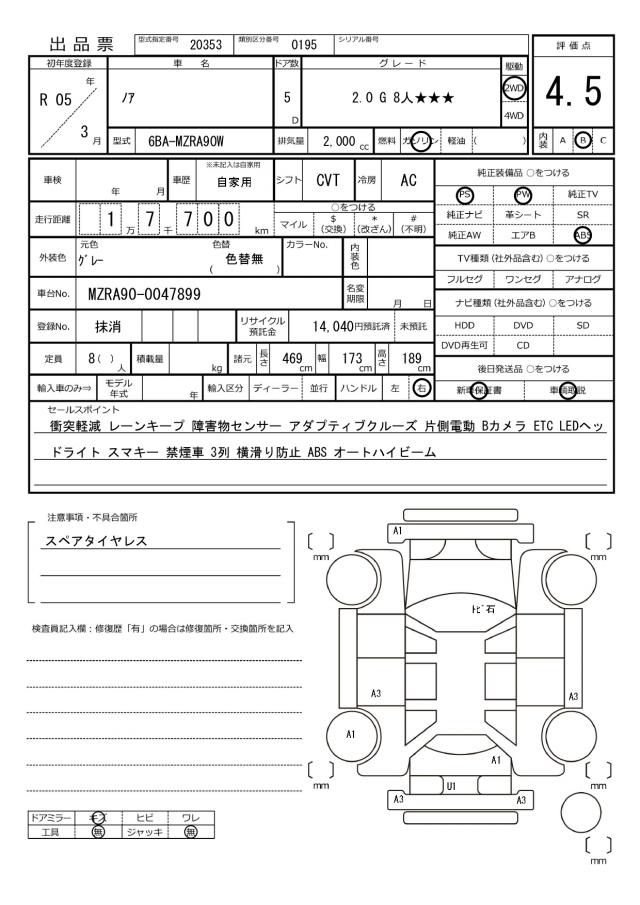 出品票 型式指定番号 20353 類別区分番号 0195 シリアル番号
評価点
4.5
初年度登録 車名 ドア数 グレード 駆動
R 05 年 3 月
ノア 5 D 2.0 G 8人★★★ 2WD
4WD
型式 6BA-MZRA90W 排気量 2,000 cc 燃料 ガソリン 軽油 ( )
内装 A B C
車検 年 月 車歴 ※未記入は自家用
自家用 シフト CVT 冷房 AC
走行距離 1 万 7 千 7 0 0 km
○をつける
マイル $ (交換) * (改ざん) # (不明)
外装色 元色 グレー 色替 ( 色替無 ) カラーNo. 内装色
車台No. MZRA90-0047899 名変期限 月 日
登録No. 抹消 リサイクル預託金 14,040円預託済 未預託
定員 8( )人 積載量 kg 諸元 長さ 469cm 幅 173cm 高さ 189cm
輸入車のみ⇒ モデル年式 年 輸入区分 ディーラー 並行 ハンドル 左 右
純正装備品 ○をつける
PS PW 純正TV
純正ナビ 革シート SR
純正AW エアB ABS
TV種類(社外品含む)○をつける
フルセグ ワンセグ アナログ
ナビ種類(社外品含む)○をつける
HDD DVD SD
DVD再生可 CD
後日発送品 ○をつける
新車保証書 車輌取説
セールスポイント
衝突軽減 レーンキープ 障害物センサー アダプティブクルーズ 片側電動 Bカメラ ETC LEDヘッ
ドライト スマキー 禁煙車 3列 横滑り防止 ABS オートハイビーム
注意事項・不具合箇所
スペアタイヤレス
検査員記入欄:修復歴「有」の場合は修復箇所・交換箇所を記入
ドアミラー キズ ヒビ ワレ
工具 無 ジャッキ 無
A1
[ ] mm
[ ] mm
トビ石
A3
A3
A1
A1
[ ] mm
[ ] mm
U1
A3
A3
[ ] mm